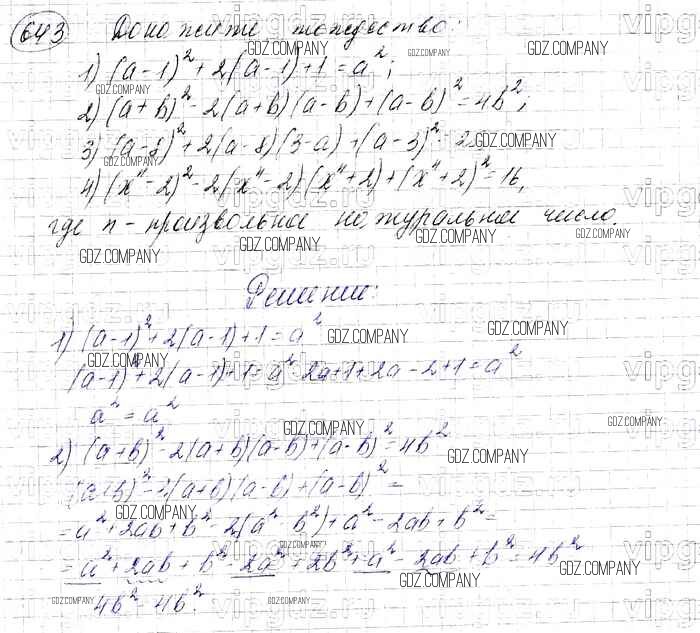 643 Докажите тождество:
1) (a-1)² + 2(a-1) + 1 = a²;
2) (a+b)² - 2(a+b)(a-b) + (a-b)² = 4b²;
3) (a-8)² + 2(a-8)(3-a) + (a-3)²
4) (xⁿ-2)² - 2(xⁿ-2)(xⁿ+2) + (xⁿ+2)² = 16,
где n - произвольное натуральное число.
Решение:
1) (a-1)² + 2(a-1) + 1 = a²
(a-1)² + 2(a-1) + 1 = a² 2a + 1 + 2a - 2 + 1 = a²
a² = a²
2) (a+b)² - 2(a+b)(a-b) + (a-b)² = 4b²
(a+b)² - 2(a+b)(a-b) + (a-b)² =
= a² + 2ab + b² - 2(a² b²) + a² - 2ab + b² =
= a² + 2ab + b² - 2a² + 2b² + a² - 2ab + b² = 4b²
4b² = 4b²